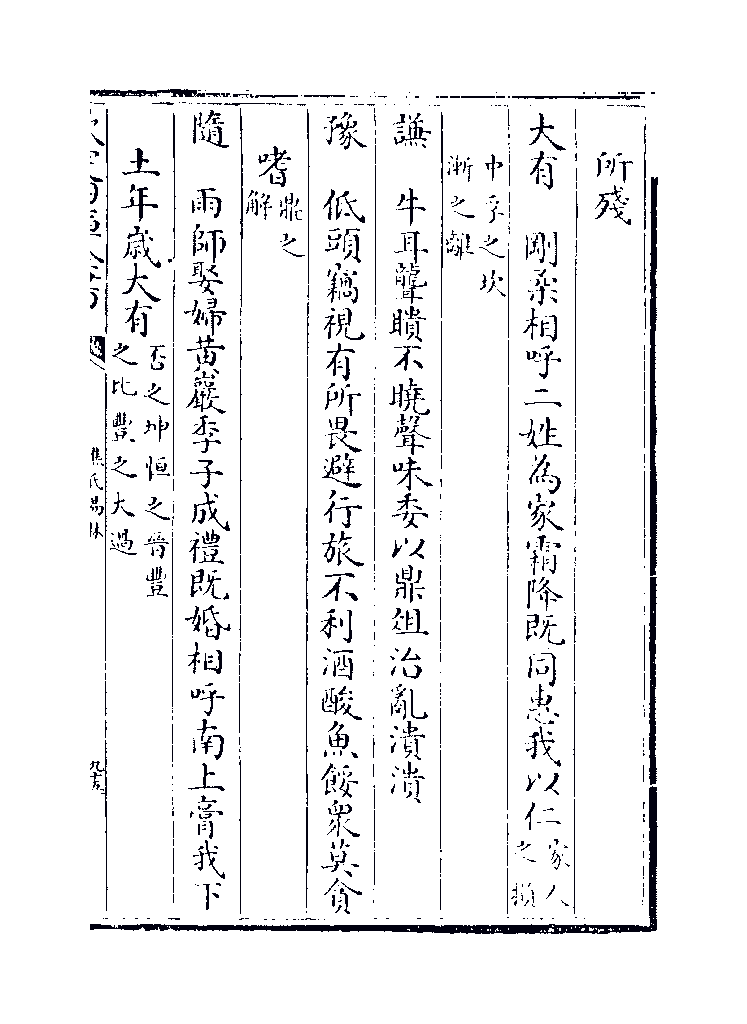 所殘
大有　剛柔相呼二姓為家霜降既同惠我以仁家人之損
中孚之坎漸之離
謙　牛耳聾聵不曉聲味委以鼎俎治亂潰潰
豫　低頭竊視有所畏避行旅不利酒酸魚餒衆莫貪
嗜鼎之解
隨　雨師娶婦黄巖季子成禮既婚相呼南上膏我下
土年歲大有否之坤恒之晉豐之比豐之大過
焦氏易林